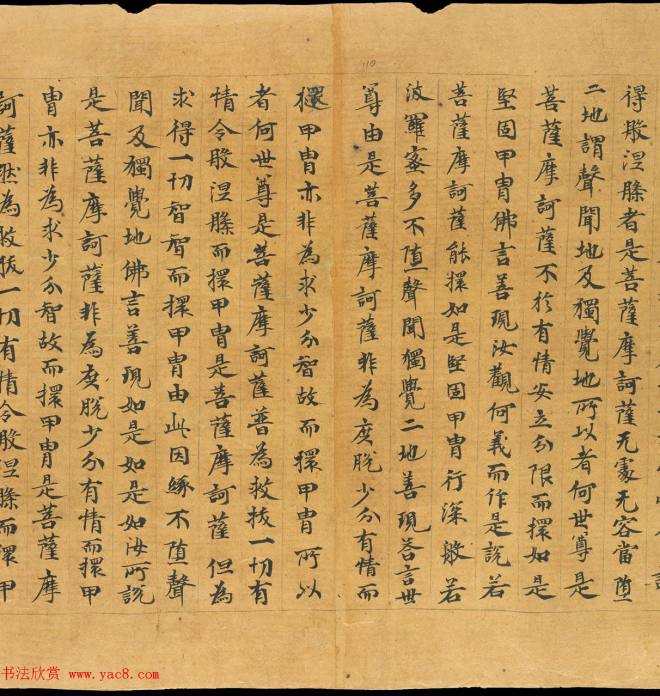 得般涅槃者是菩薩摩訶薩无處无容當堕
二地謂聲聞地及獨覺地所以者何世尊是
菩薩摩訶薩不於有情安立分限而擐如是
堅固甲胄佛言善現汝觀何義而作是說若
菩薩摩訶薩能擐如是堅固甲胄行深般若
波羅蜜多不堕聲聞獨覺二地善現荅言世
尊由是菩薩摩訶薩非為度脫少分有情而
擐甲胄亦非為求少分智故而擐甲胄所以
者何世尊是菩薩摩訶薩普為救拔一切有
情令般涅槃而擐甲胄是菩薩摩訶薩但為
求得一切智智而擐甲胄由此因緣不堕聲
聞及獨覺地佛言善現如是如是如汝所說
是菩薩摩訶薩非為度脫少分有情而擐甲
胄亦非為求少分智故而擐甲胄是菩薩摩
訶薩然為救拔一切有情令般涅槃而擐甲
110
书法欣赏 www.yac8.com